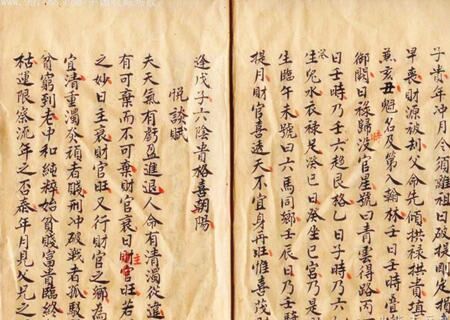 子貴年冲月令須離祖日破提則定損
早喪財源被刦父命先傾拱祿拱貴填
亥丑魁名及第入翰林壬日壬時喜
御閣日祿歸没官星號曰青雲得路丙
日壬時乃壬六趋艮格乙日子時乃六
生兒水衣祿足癸巳日癸坐巳宮乃是
生臨午未號曰六馬同鄉壬辰日乃壬騎
提月財官喜透天不宜身再旺惟喜茂
逢戊子六陰貴格喜朝陽
悅談賦
夫天氣有虧盈進退人命有清濁從進
有可棄而不可棄財官衰日主財官旺若
之妙日主衰財官旺又行財官之鄉為
宜清重濁者賤刑冲破戰者孤駁
貧窮到老中和純粹始貧賤富貴臨終
枯運限察流年之否泰年月見父兄之